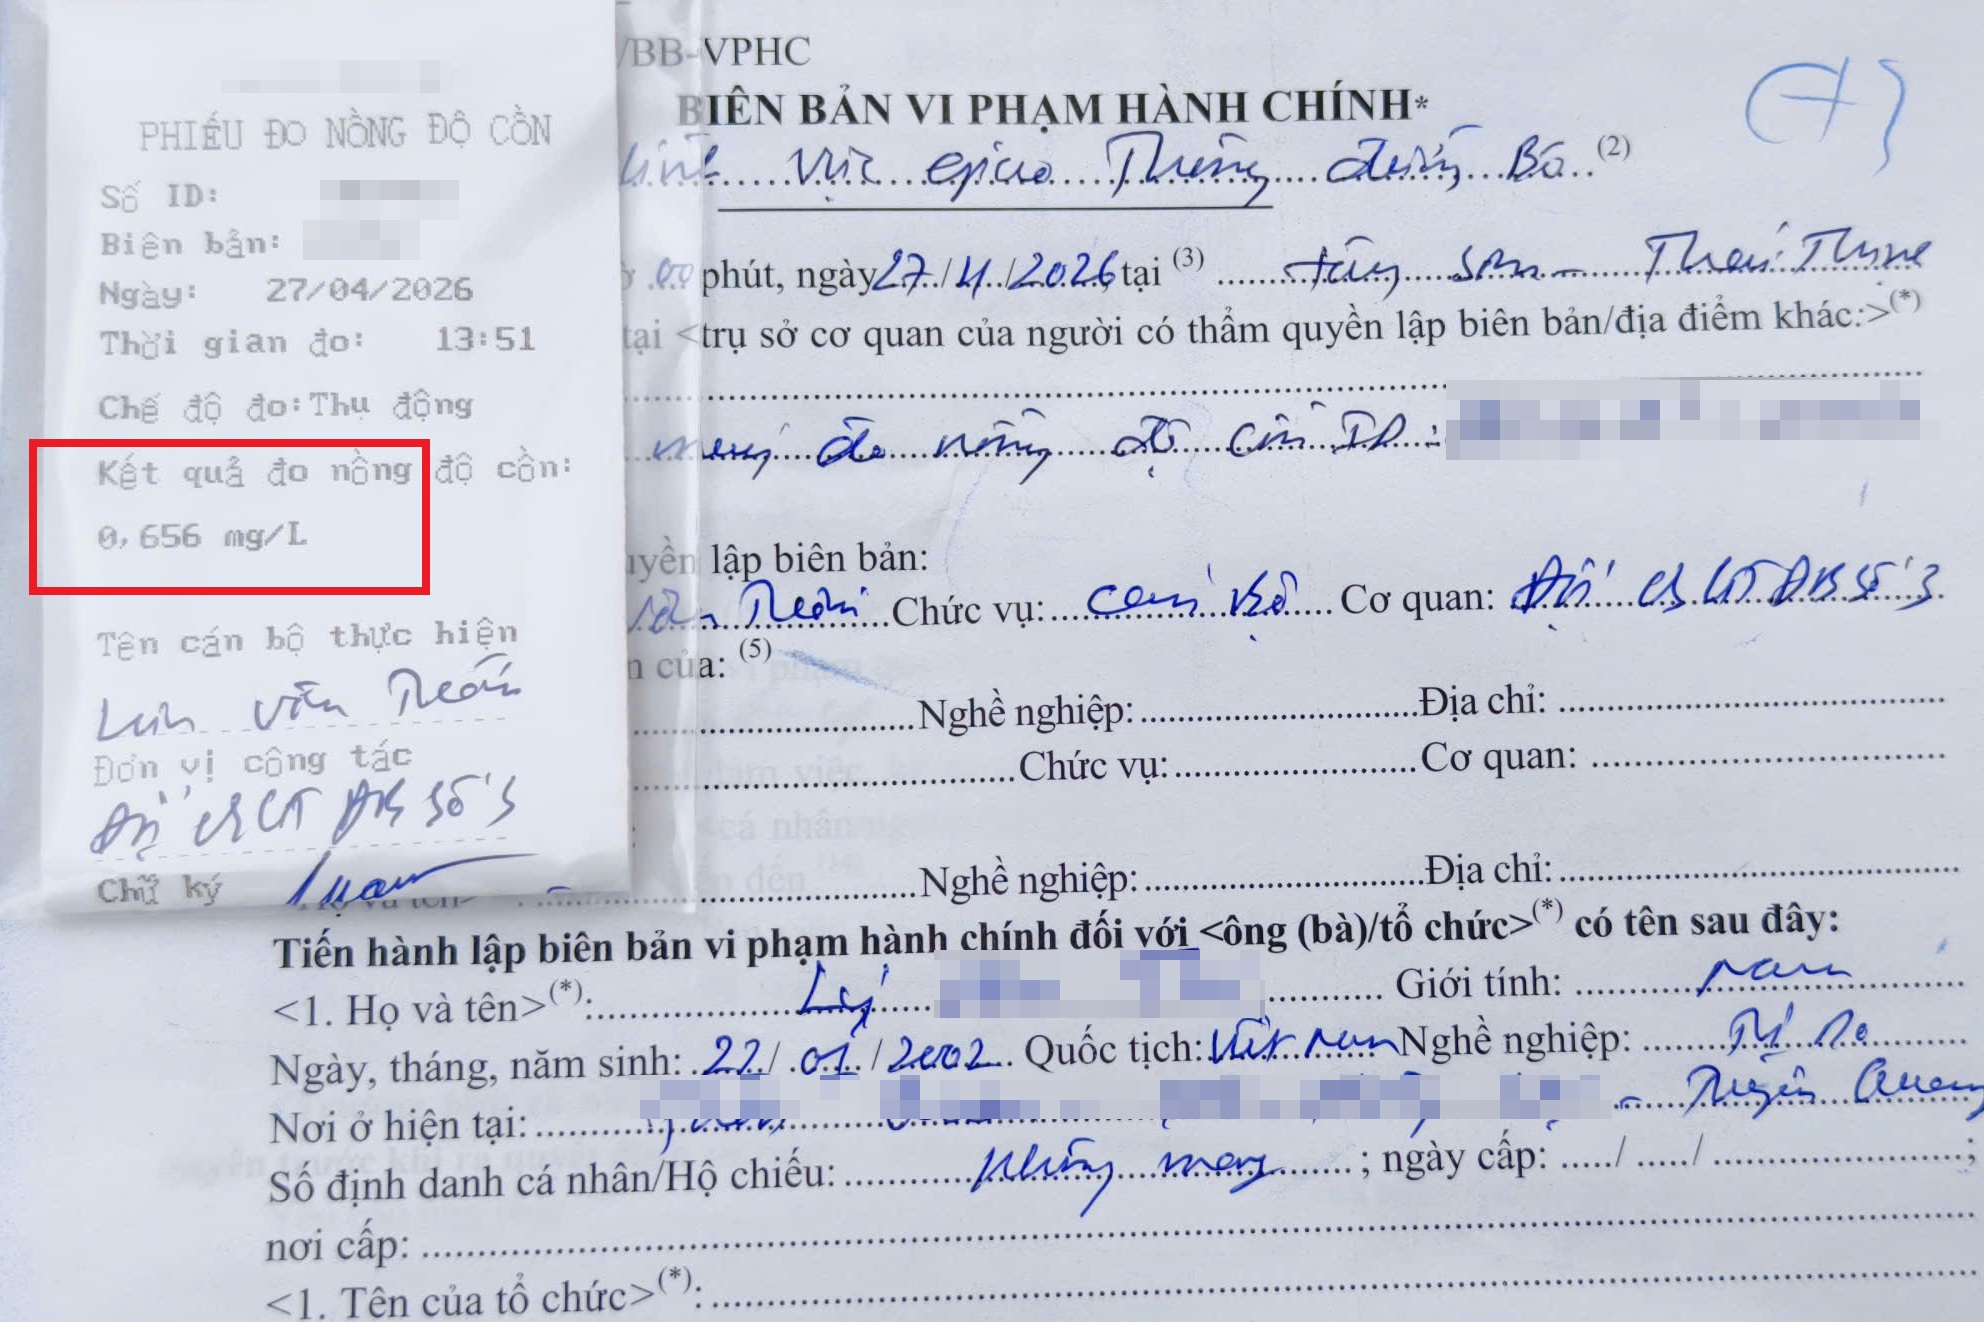 PHIẾU ĐO NỒNG ĐỘ CỒN
Số ID:
Biên bản:
Ngày: 27/04/2026
Thời gian đo: 13:51
Chế độ đo:Thụ động
Kết quả đo nồng độ cồn:
0,656 mg/L
Tên cán bộ thực hiện
Văn
Đơn vị công tác
Đội CSGT ĐB Số 3
Chữ ký
/BB-VPHC
BIÊN BẢN VI PHẠM HÀNH CHÍNH*
Lĩnh vực giao Thông đường Bộ (2)
00 phút, ngày 27/4/2026, tại (3)
tại <trụ sở cơ quan của người có thẩm quyền lập biên bản/địa điểm khác:>(*)
máy đo nồng độ cồn ID:
quyền lập biên bản:
Văn Chức vụ: Cán bộ Cơ quan: Đội CSGT ĐB Số 3
của: (5)
Nghề nghiệp: Địa chỉ:
Chức vụ: Cơ quan:
Nghề nghiệp: Địa chỉ:
Tiến hành lập biên bản vi phạm hành chính đối với <ông (bà)/tổ chức>(*) có tên sau đây:
<1. Họ và tên>(*): Lý Giới tính: nam
Ngày, tháng, năm sinh: 22/01/2002. Quốc tịch: Việt Nam Nghề nghiệp: Tự Do
Nơi ở hiện tại: Tuyên Quang
Số định danh cá nhân/Hộ chiếu: không mang ; ngày cấp: ...../ ...../ ;
nơi cấp:
<1. Tên của tổ chức>(*):